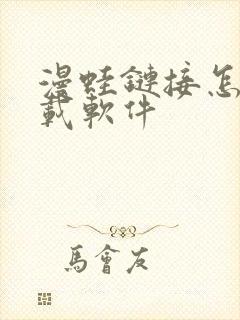 漫蛙鏈接怎
載軟件
馬會友